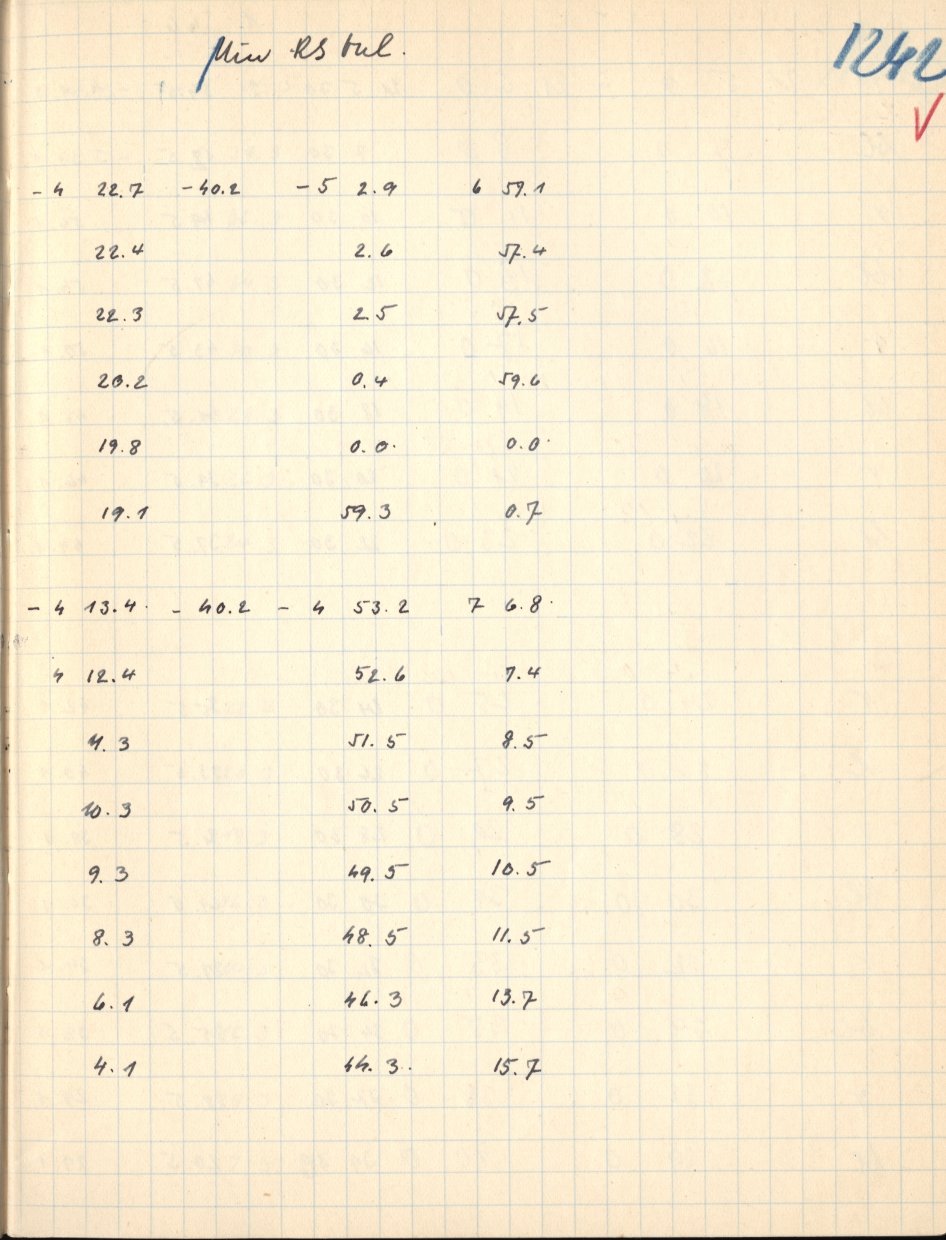 1242
RS
- 4 22.7 - 40.2 - 5 2.9 6 59.1
22.4 2.6 57.4
22.3 2.5 57.5
20.2 0.4 59.6
19.8 0.0 0.0
19.1 59.3 0.7
- 4 13.4 - 40.2 - 4 53.2 7 6.8
4 12.4 52.6 7.4
11.3 51.5 8.5
10.3 50.5 9.5
9.3 49.5 10.5
8.3 48.5 11.5
6.1 46.3 13.7
4.1 44.3 15.7